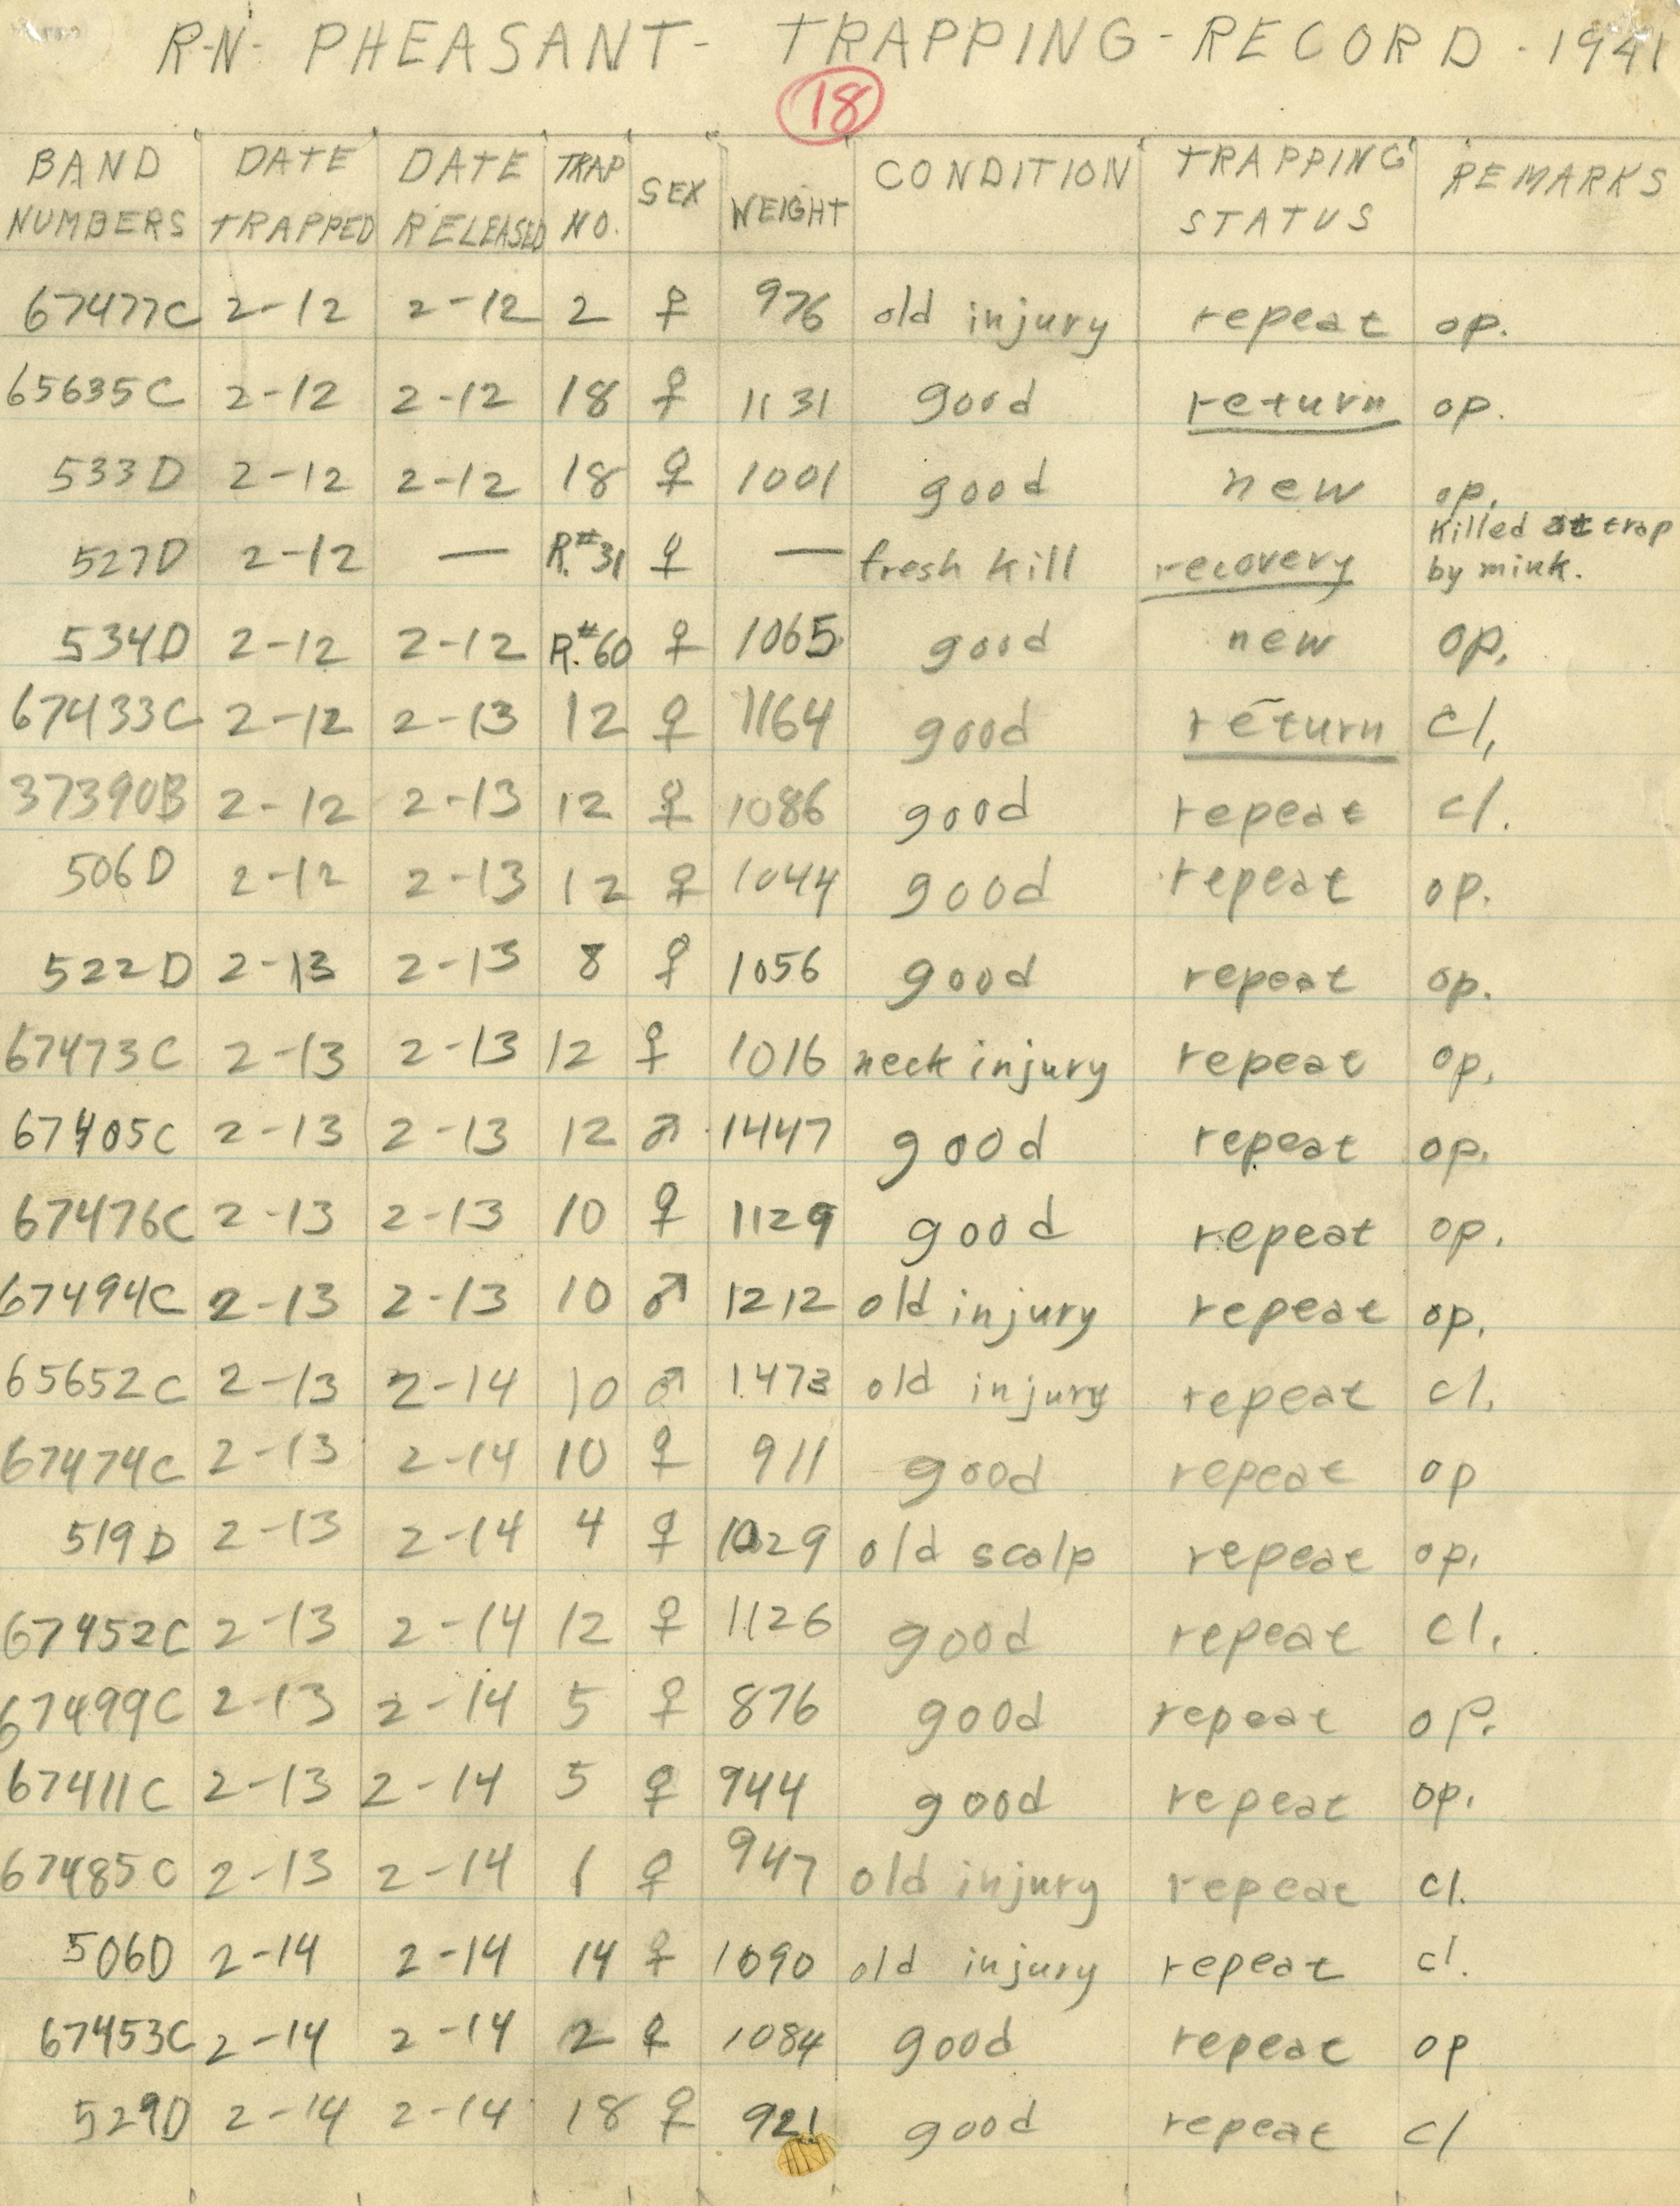 R-N- PHEASANT- TRAPPING-RECORD-1941
18
BAND NUMBERS DATE TRAPPED DATE RELEASED TRAP NO. SEX WEIGHT CONDITION TRAPPING STATUS REMARKS
67477C 2-12 2-12 2 ♀ 976 old injury repeat op.
65635C 2-12 2-12 18 ♀ 1131 good return op.
533D 2-12 2-12 18 ♀ 1001 good new op.
527D 2-12 — R.#31 ♀ — fresh kill recovery Killed at trap by mink.
534D 2-12 2-12 R.#60 ♀ 1065 good new op.
67433C 2-12 2-13 12 ♀ 1164 good return cl.
37390B 2-12 2-13 12 ♀ 1086 good repeat cl.
506D 2-12 2-13 12 ♀ 1044 good repeat op.
522D 2-13 2-13 8 ♀ 1056 good repeat op.
67473C 2-13 2-13 12 ♀ 1016 neck injury repeat op.
67405C 2-13 2-13 12 ♂ 1447 good repeat op.
67476C 2-13 2-13 10 ♀ 1129 good repeat op.
67494C 2-13 2-13 10 ♂ 1212 old injury repeat op.
65652C 2-13 2-14 10 ♂ 1473 old injury repeat cl.
67474C 2-13 2-14 10 ♀ 911 good repeat op
519D 2-13 2-14 4 ♀ 1029 old scalp repeat op.
67452C 2-13 2-14 12 ♀ 1126 good repeat cl.
67499C 2-13 2-14 5 ♀ 876 good repeat op.
67411C 2-13 2-14 5 ♀ 944 good repeat op.
67485C 2-13 2-14 1 ♀ 947 old injury repeat cl.
506D 2-14 2-14 14 ♀ 1090 old injury repeat cl.
67453C 2-14 2-14 2 ♀ 1084 good repeat op
529D 2-14 2-14 18 ♀ 921 good repeat cl